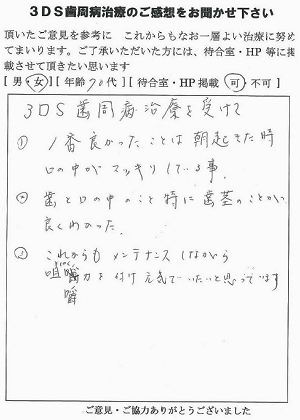 ３ＤＳ歯周病治療のご感想をお聞かせ下さい
頂いたご意見を参考に　これからもなお一層よい治療に努め
てまいります。ご了承いただいた方には、待合室・HP 等に掲
載させて頂きたい思います
[ 男・女 ] [ 年齢 70 代 ] [ 待合室・HP掲載　可・不可 ]
３DS 歯周病治療を受けて
① 1番良かったことは朝起きた時
口の中がスッキリしている事.
② 歯と口の中のこと特に歯茎のことが
良くわかった.
③ これからも メンテナンスしながら
咀嚼力を付け元気でいたいと思っています
嚼
ご意見・ご協力ありがとうございました